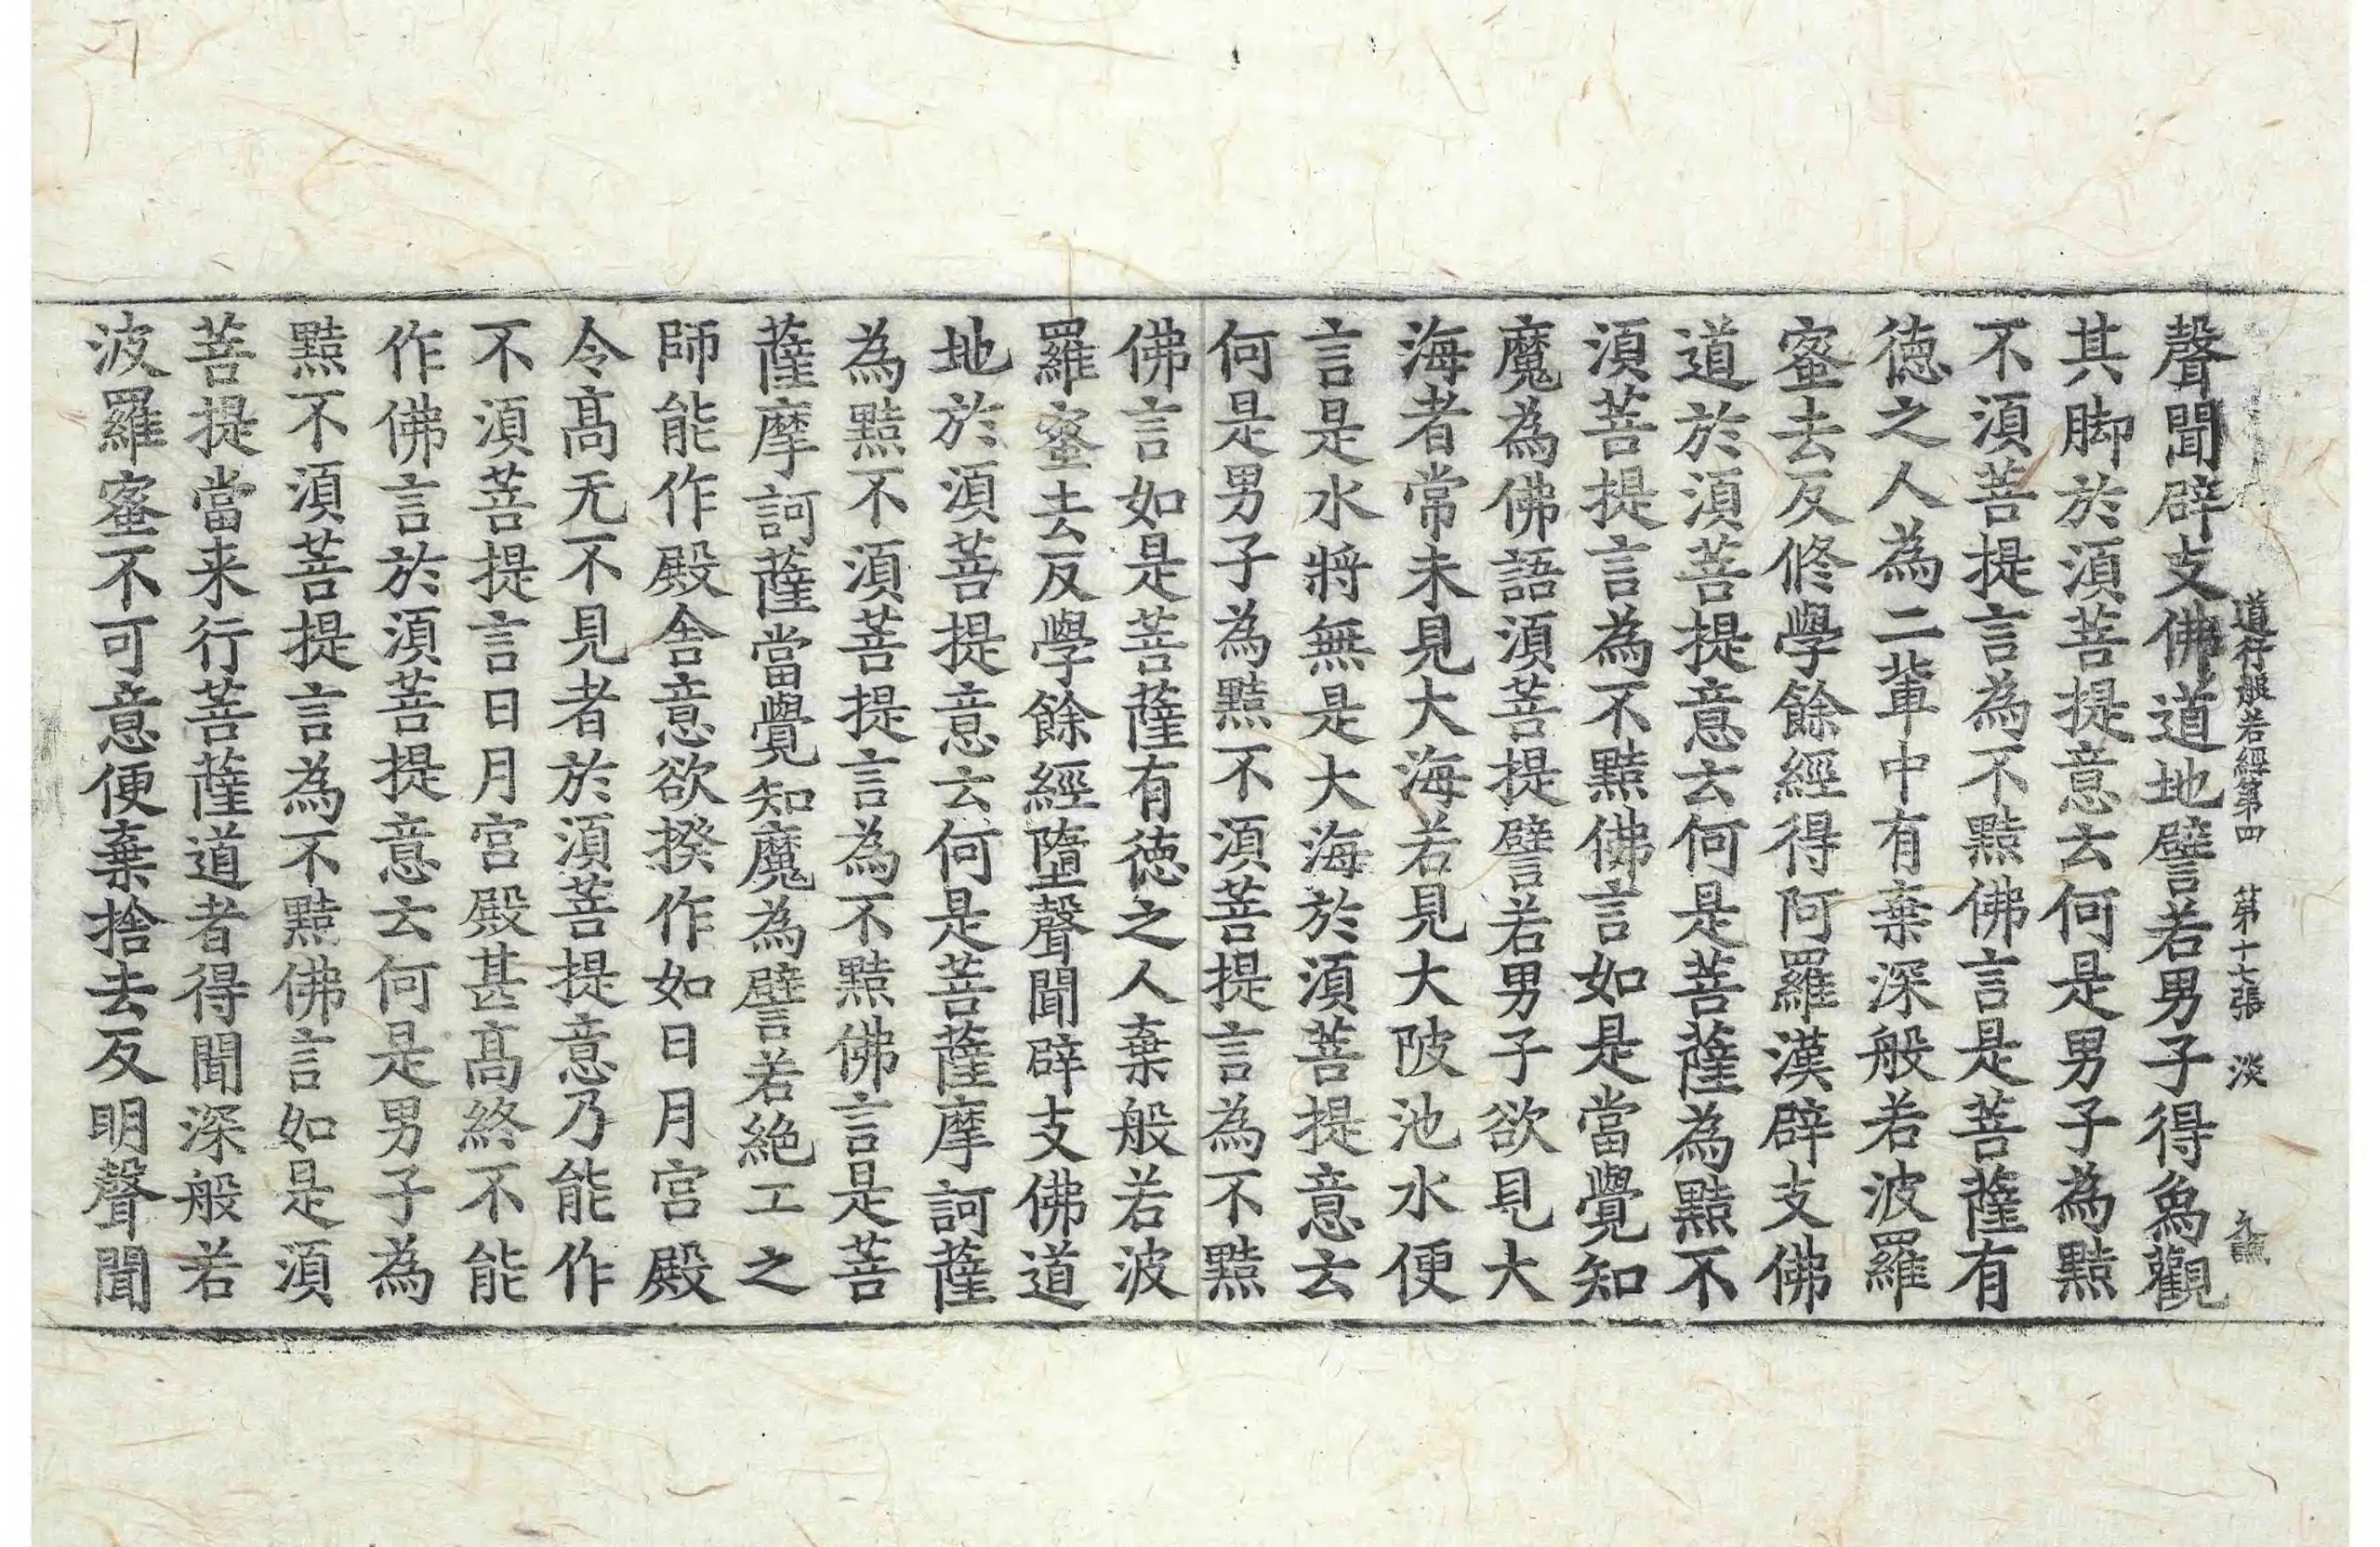 道行般若經第四　第十七張　淡
聲聞辟支佛道地譬若男子得象觀
其脚於湏菩提意云何是男子為黠
不湏菩提言為不黠佛言是菩薩有
德之人為二軰中有棄深般若波羅
蜜去反修學餘經得阿羅漢辟支佛
道於湏菩提意云何是菩薩為黠不
湏菩提言為不黠佛言如是當覺知
魔為佛語湏菩提譬若男子欲見大
海者常未見大海若見大陂池水便
言是水將無是大海於湏菩提意云
何是男子為黠不湏菩提言為不黠
佛言如是菩薩有德之人棄般若波
羅蜜去反學餘經墮聲聞辟支佛道
地於湏菩提意云何是菩薩摩訶薩
為黠不湏菩提言為不黠佛言是菩
薩摩訶薩當覺知魔為譬若絶工之
師能作殿舍意欲揆作如日月宫殿
令髙无不見者於湏菩提意乃能作
不湏菩提言日月宫殿甚髙終不能
作佛言於湏菩提意云何是男子為
黠不湏菩提言為不黠佛言如是湏
菩提當来行菩薩道者得聞深般若
波羅蜜不可意便棄捨去反明聲聞